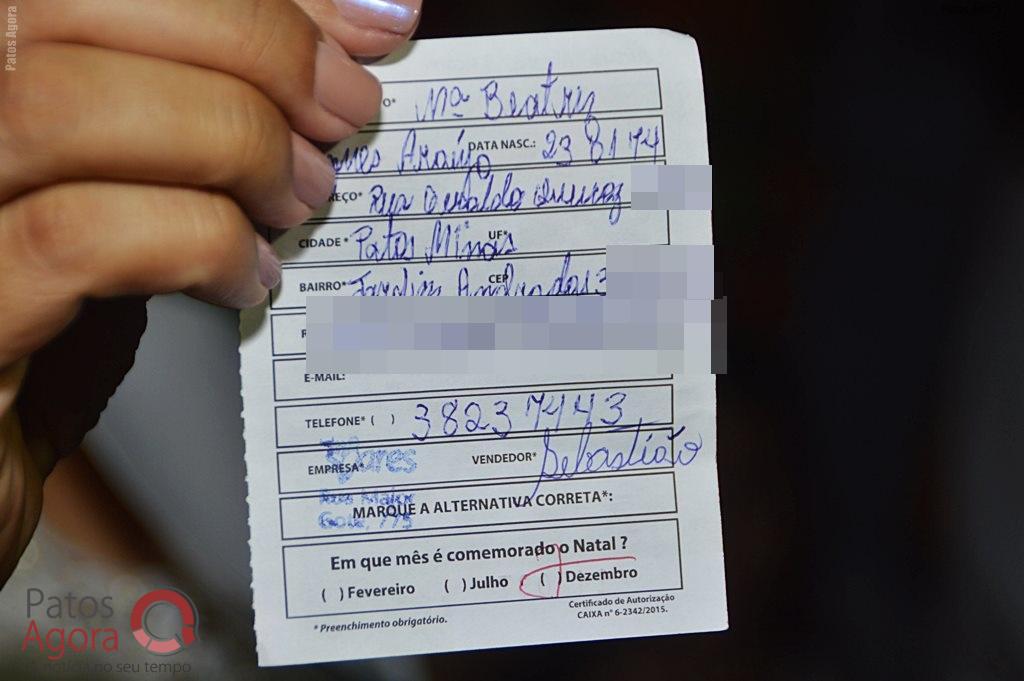 Patos Agora
O* Mª Beatriz
mes Araújo DATA NASC.: 23 8 74
REÇO* Rua
CIDADE* Patos Minas UF*
BAIRRO* Jardim Andradas CEP
R
E-MAIL:
TELEFONE* ( ) 38237443
EMPRESA* VENDEDOR* Sebastião
MARQUE A ALTERNATIVA CORRETA*:
Em que mês é comemorado o Natal ?
( ) Fevereiro ( ) Julho ( ) Dezembro
* Preenchimento obrigatório.
Certificado de Autorização
CAIXA nº 6-2342/2015.
Patos
Agora
notícia no seu tempo